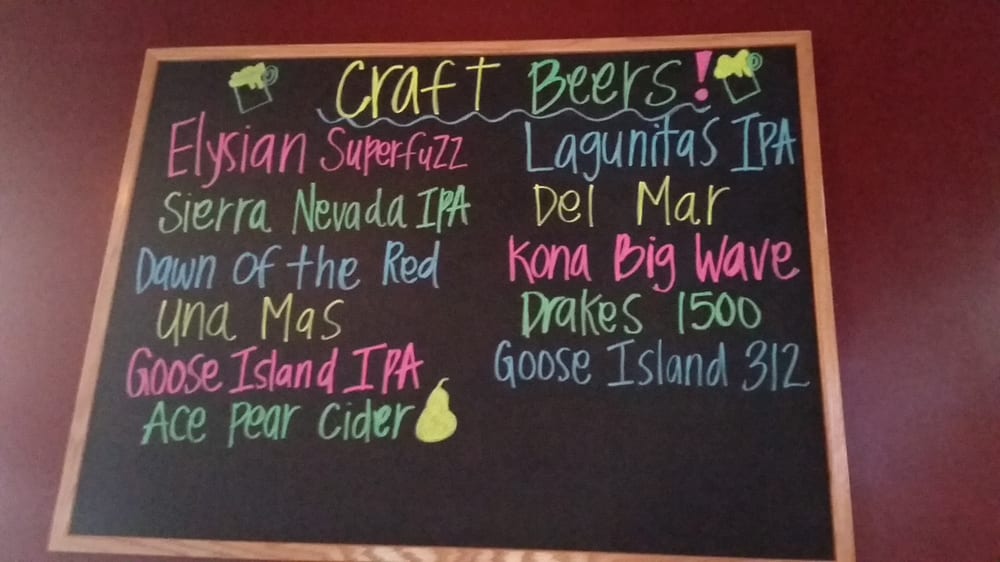 Craft Beers!
Elysian Superfuzz
Sierra Nevada IPA
Dawn Of the Red
Una Mas
Goose Island IPA
Ace Pear Cider
Lagunitas IPA
Del Mar
Kona Big Wave
Drakes 1500
Goose Island 312